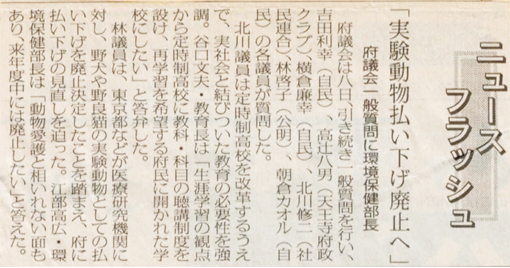 ニュース
フラッシュ
「実験動物払い下げ廃止へ」
府議会一般質問に環境保健部長
府議会は八日、引き続き一般質問を行い、
吉田利幸（自民）、高辻八男（天王寺府政
クラブ）、横倉廉幸（自民）、北川修二（社
民連合）、林啓子（公明）、朝倉カオル（自
民）の各議員が質問した。
北川議員は定時制高校を改革するうえ
で、実社会と結びついた教育の必要性を強
調。谷口文夫・教育長は「生涯学習の観点
から定時制高校に教科・科目の聴講制度を
設け、再学習を希望する府民に開かれた学
校にしたい」と答弁した。
林議員は、東京都などが医療研究機関に
対し、野犬や野良猫の実験動物としての払
い下げを廃止決定したことを踏まえ、府に
払い下げの見直しを迫った。江部高広・環
境保健部長は「動物愛護と相いれない面も
あり、来年度中には廃止したい」と答えた。